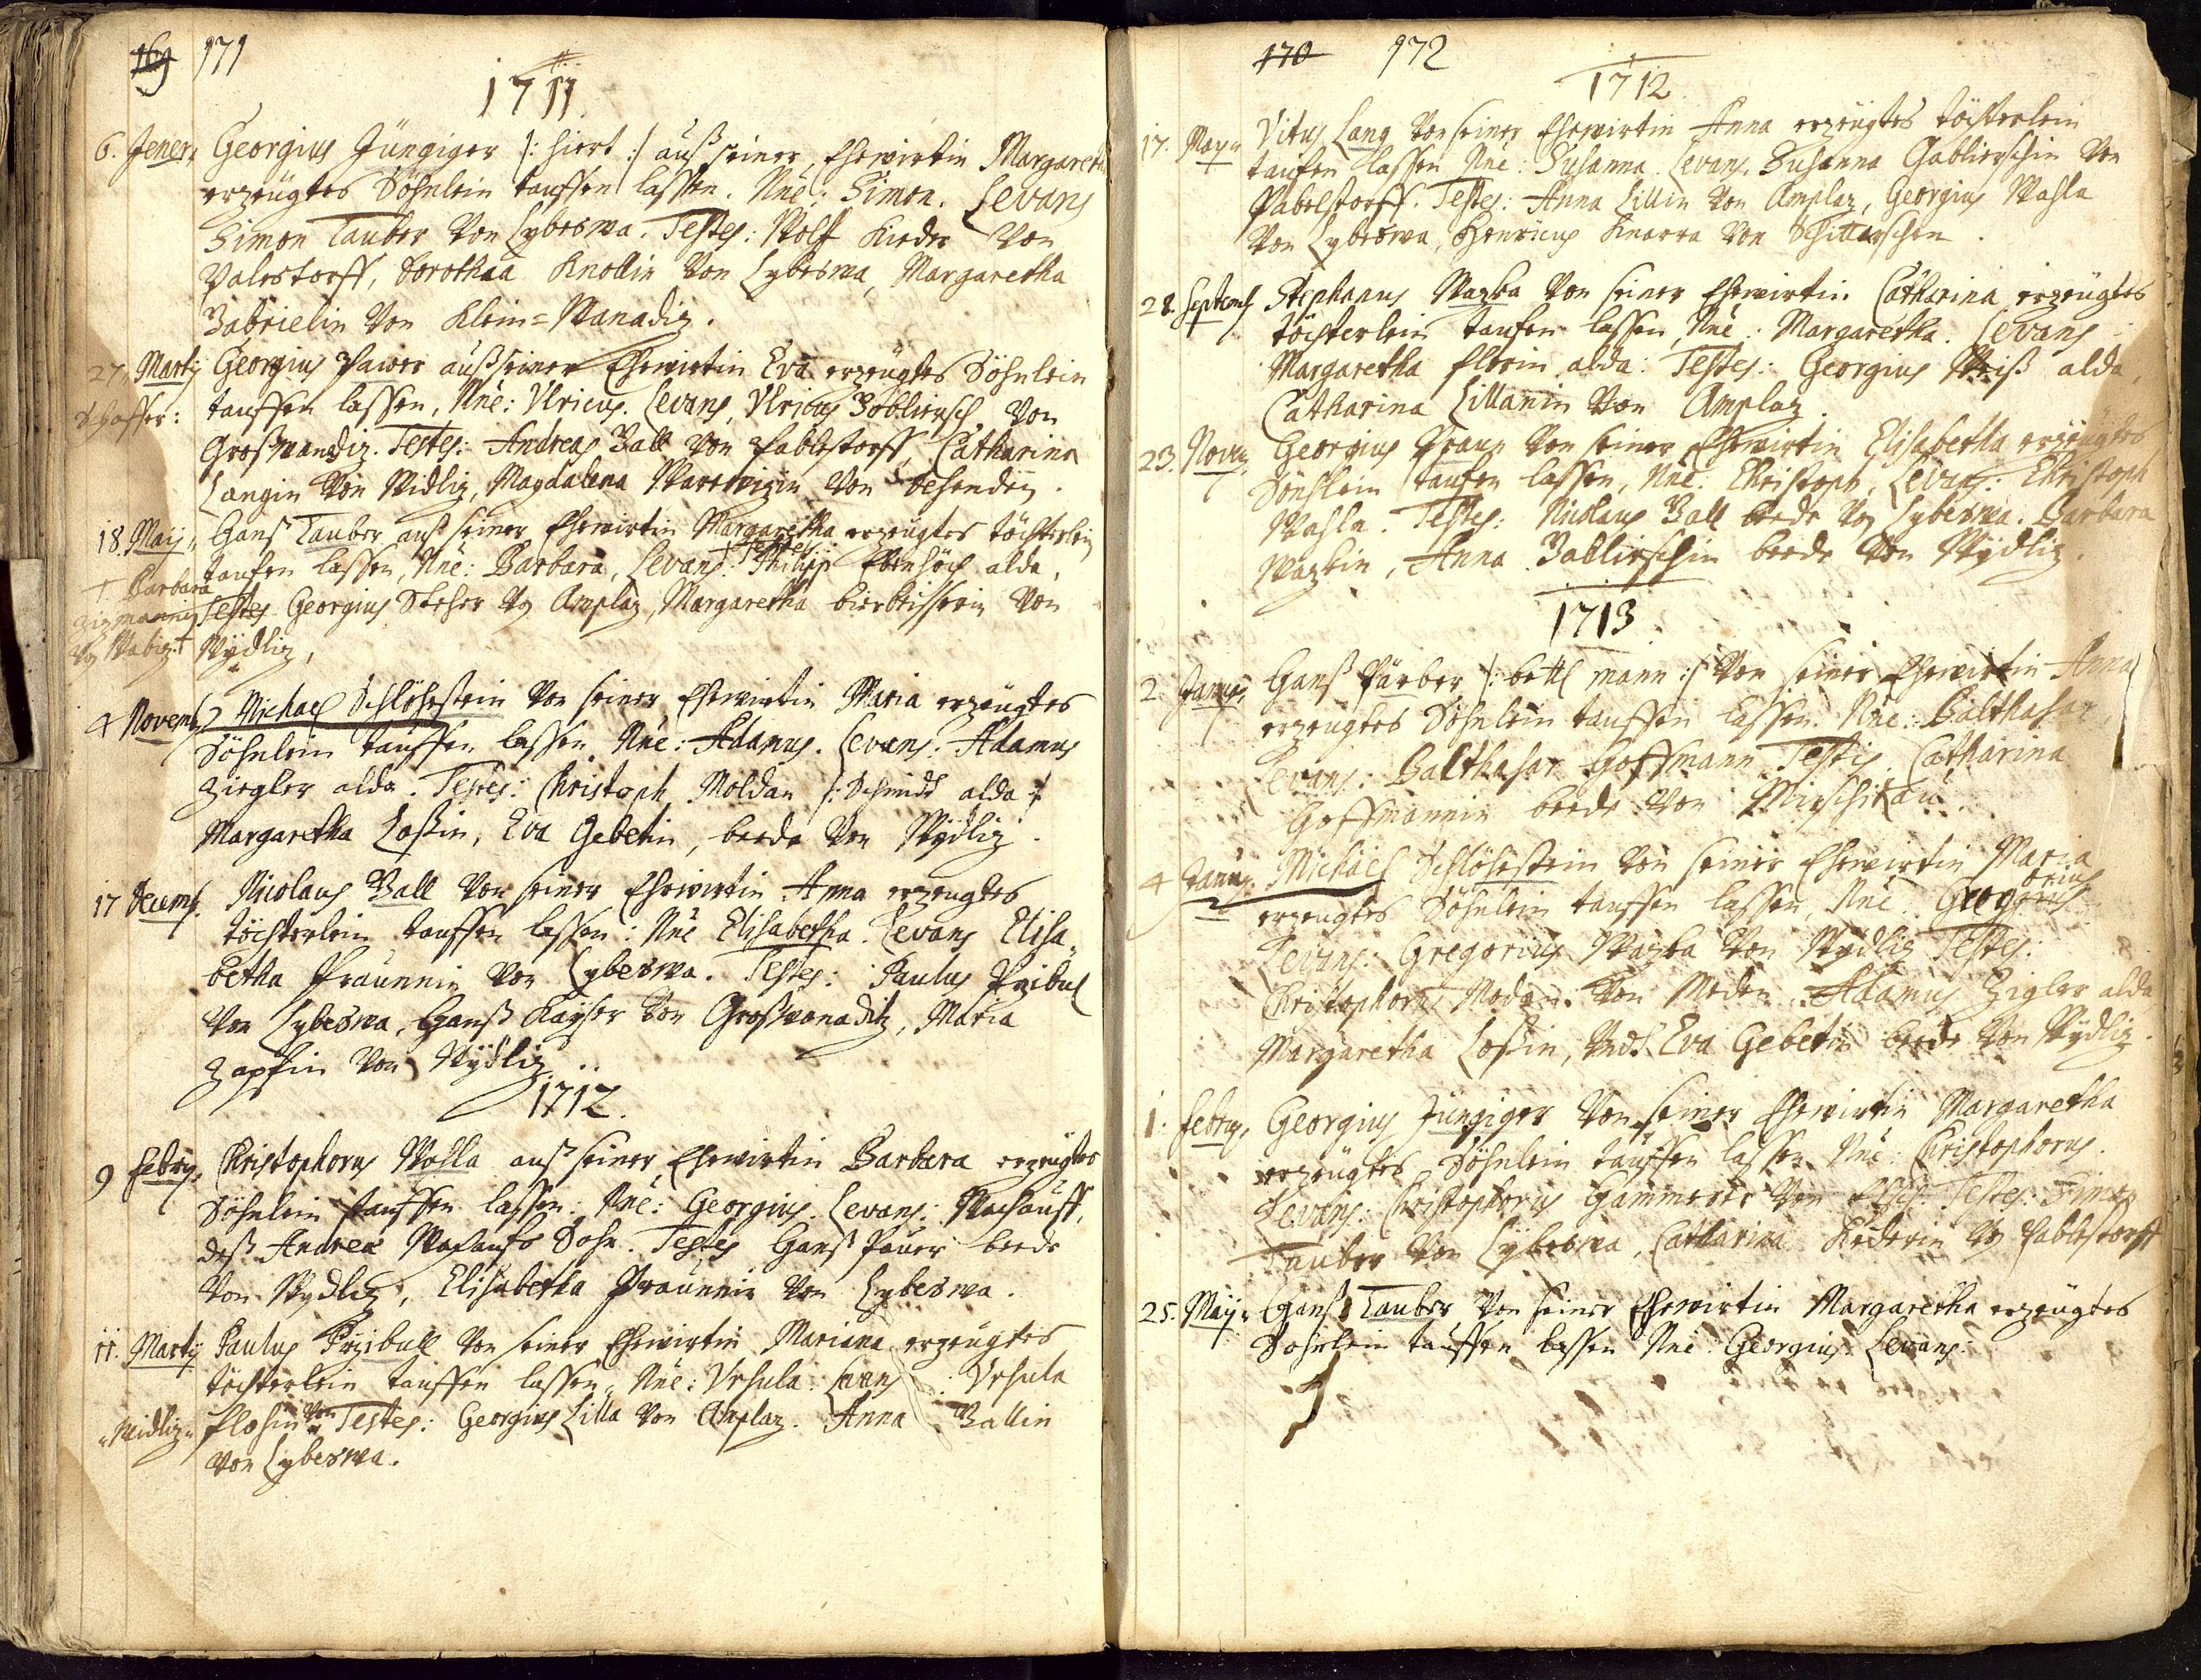 169 171
1711.
6. Jener, Georgius Jüngiger /: hiert :/ auß seiner Ehewirtin Margaretha
erzeügtes Söhnlein tauffen lassen. Nne: Simon. Levans
Simon Tauber von Lyberswa. Testes: Wolff Kieder von
Palestorff, Dorothaa Knollin von Lyberswa, Margaretha
Zabrielin von Klein=Wanadiz.
27. Martij Georgius Pawer auß seiner Ehewirtin Eva erzeügtes Söhnlein
tauffen lassen, Nne: Vlricus. Levans, Vlricus Zobliersch, von
Großwandiz. Testes: Andreas Ball von Pablestorff, Catharina
Langin von Widliz, Magdalena von
18. Maij, Hanß Tauber auß seiner Ehewirtin Margaretha erzeügtes töchterlein
taufen lassen, Nne: Barbara, Levans: Philipp alda.
+ Barbara
Testes Georgius Steher von Amplaz, Margaretha von
Wÿdliz,
4 Novemb Michael Schlöhestein von seiner Ehewirtin Maria erzeügtes
Söhnlein tauffen lassen Nne: Adamus. Levans: Adamus
Ziegler alda. Testes: Christoph Moldan /: Schmidt alda :/
Margaretha Loßin, Eva Gebetin, beede von Wÿdliz.
17 Decemb. Nicolaus Ball von seiner Ehewirtin Anna erzeugtes
töchterlein tauffen lassen: Nne Elisabetha. Levans Elisa=
betha Praunnin von Lyberswa. Testes: Paulus Przibul
von Lyberswa, Hanß Kayser von Großwanaditz, Maria
Zapfin von Wÿdliz.
1712.
9 Febru, Christophorus Wohla auß seiner Ehewirtin Barbara erzeügtes
Söhnlein tauffen lassen: Nne: Georgius. Levans: Wachauff,
deß Andreæ Wachaufs Sohn. Testes Hanß Pauer beede
von Wydliz, Elisabetha Praunnin von Lyberswa.
11. Martij Paulus Przibull von seiner Ehewirtin Mariana erzeugtes
töchterlein tauffen lassen, Nne: Vrsula. Levans: Vrsula
Floßin von Widliz Testes: Georgius Lilla von Amplaz. Anna Ballin
von Lyberswa.
170 172
1712
17. May Vitus Lang von seiner Ehewirtin Anna erzeügtes töchterlein
taufen lassen Nne: Susanna. Levans, Susanna Gablierschin von
Pabelstorff. Testes: Anna Lillin von Amplaz, Georgius Wahla
von Lyberswa, Henricus Knorra von
28. Septemb Stephanus Wazka von seiner Ehewirtin Catharina erzeügtes
töchterlein taufen lassen, Nne: Margaretha. Levans
Margaretha Florin alda: Testes: Georgius Weiß alda,
Catharina Lillanin von Amplaz.
23. Nov. Georgius Praun von seiner Ehewirtin Elisabetha erzeügtes
Söhnlein taufen lassen, Nne: Christoph, Levans: Christoph
Wahla. Testes: Nicolaus Ball beede von Lyberswa. Barbara
Wazkin, Anna Zablirschin beede von Wÿdliz.
1713
2. Janu, Hanß Färber /: bettl mann :/ von seiner Ehewirtin Anna
erzeügtes Söhnlein tauffen lassen. Nne: Balthasar,
Levans: Balthasar Hoffmann Testis. Catharina
Hoffmannin beede von Mirschikau.
4 Janu. Michael Schlöhestein von seiner Ehewirtin Maria
erzeugtes Söhnlein tauffen lassen, Nne: Gregorius
Levans: Gregorius Wazka von Wÿdliz Testes:
Christophorus Modan. von Medon. Adamus Zigler alda
Margaretha Loßin, Vndt Eva Gebetin beede von Wÿdliz.
1. Febru, Georgius Jüngiger von seiner Ehewirtin Margaretha
erzeügtes Söhnlein tauffen lassen Nne: Christophorus.
Levans: Christophorus Hammerer von Testes: Simon
Tauber von Lyberswa, Catharina Kiederin von Pablestorff
25. Maij Hanß Tauber von seiner Ehewirtin Margaretha erzeügtes
Sohnlein tauffen lassen Nne Georgius. Levans: